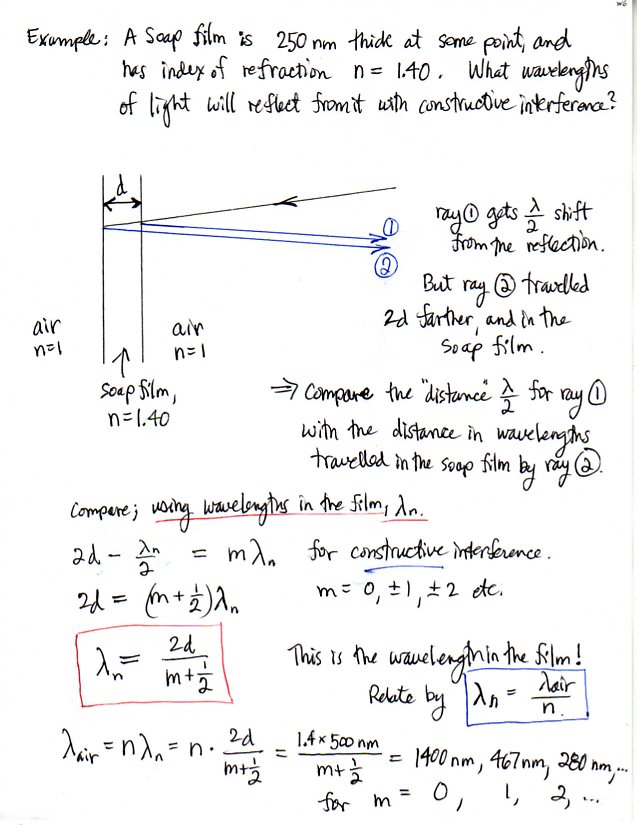 W6
Example: A Soap film is 250 nm thick at some point, and
has index of refraction n = 1.40. What wavelengths
of light will reflect from it with constructive interference?
d
①
②
ray① gets λ/2 shift
from the reflection.
But ray ② travelled
2d farther, and in the
soap film.
air
n=1
air
n=1
soap film,
n=1.40
⇒ Compare the "distance" λ/2 for ray ①
with the distance in wavelengths
travelled in the soap film by ray ②.
Compare; using wavelengths in the film, λn.
2d - λn/2 = mλn for constructive interference.
2d = (m+1/2)λn m = 0, ±1, ±2 etc.
λn = 2d/(m+1/2)
This is the wavelength in the film!
Relate by λn = λair/n.
λair = nλn = n · 2d/(m+1/2) = 1.4×500nm/(m+1/2) = 1400nm, 467nm, 280nm,...
for m = 0, 1, 2, ...